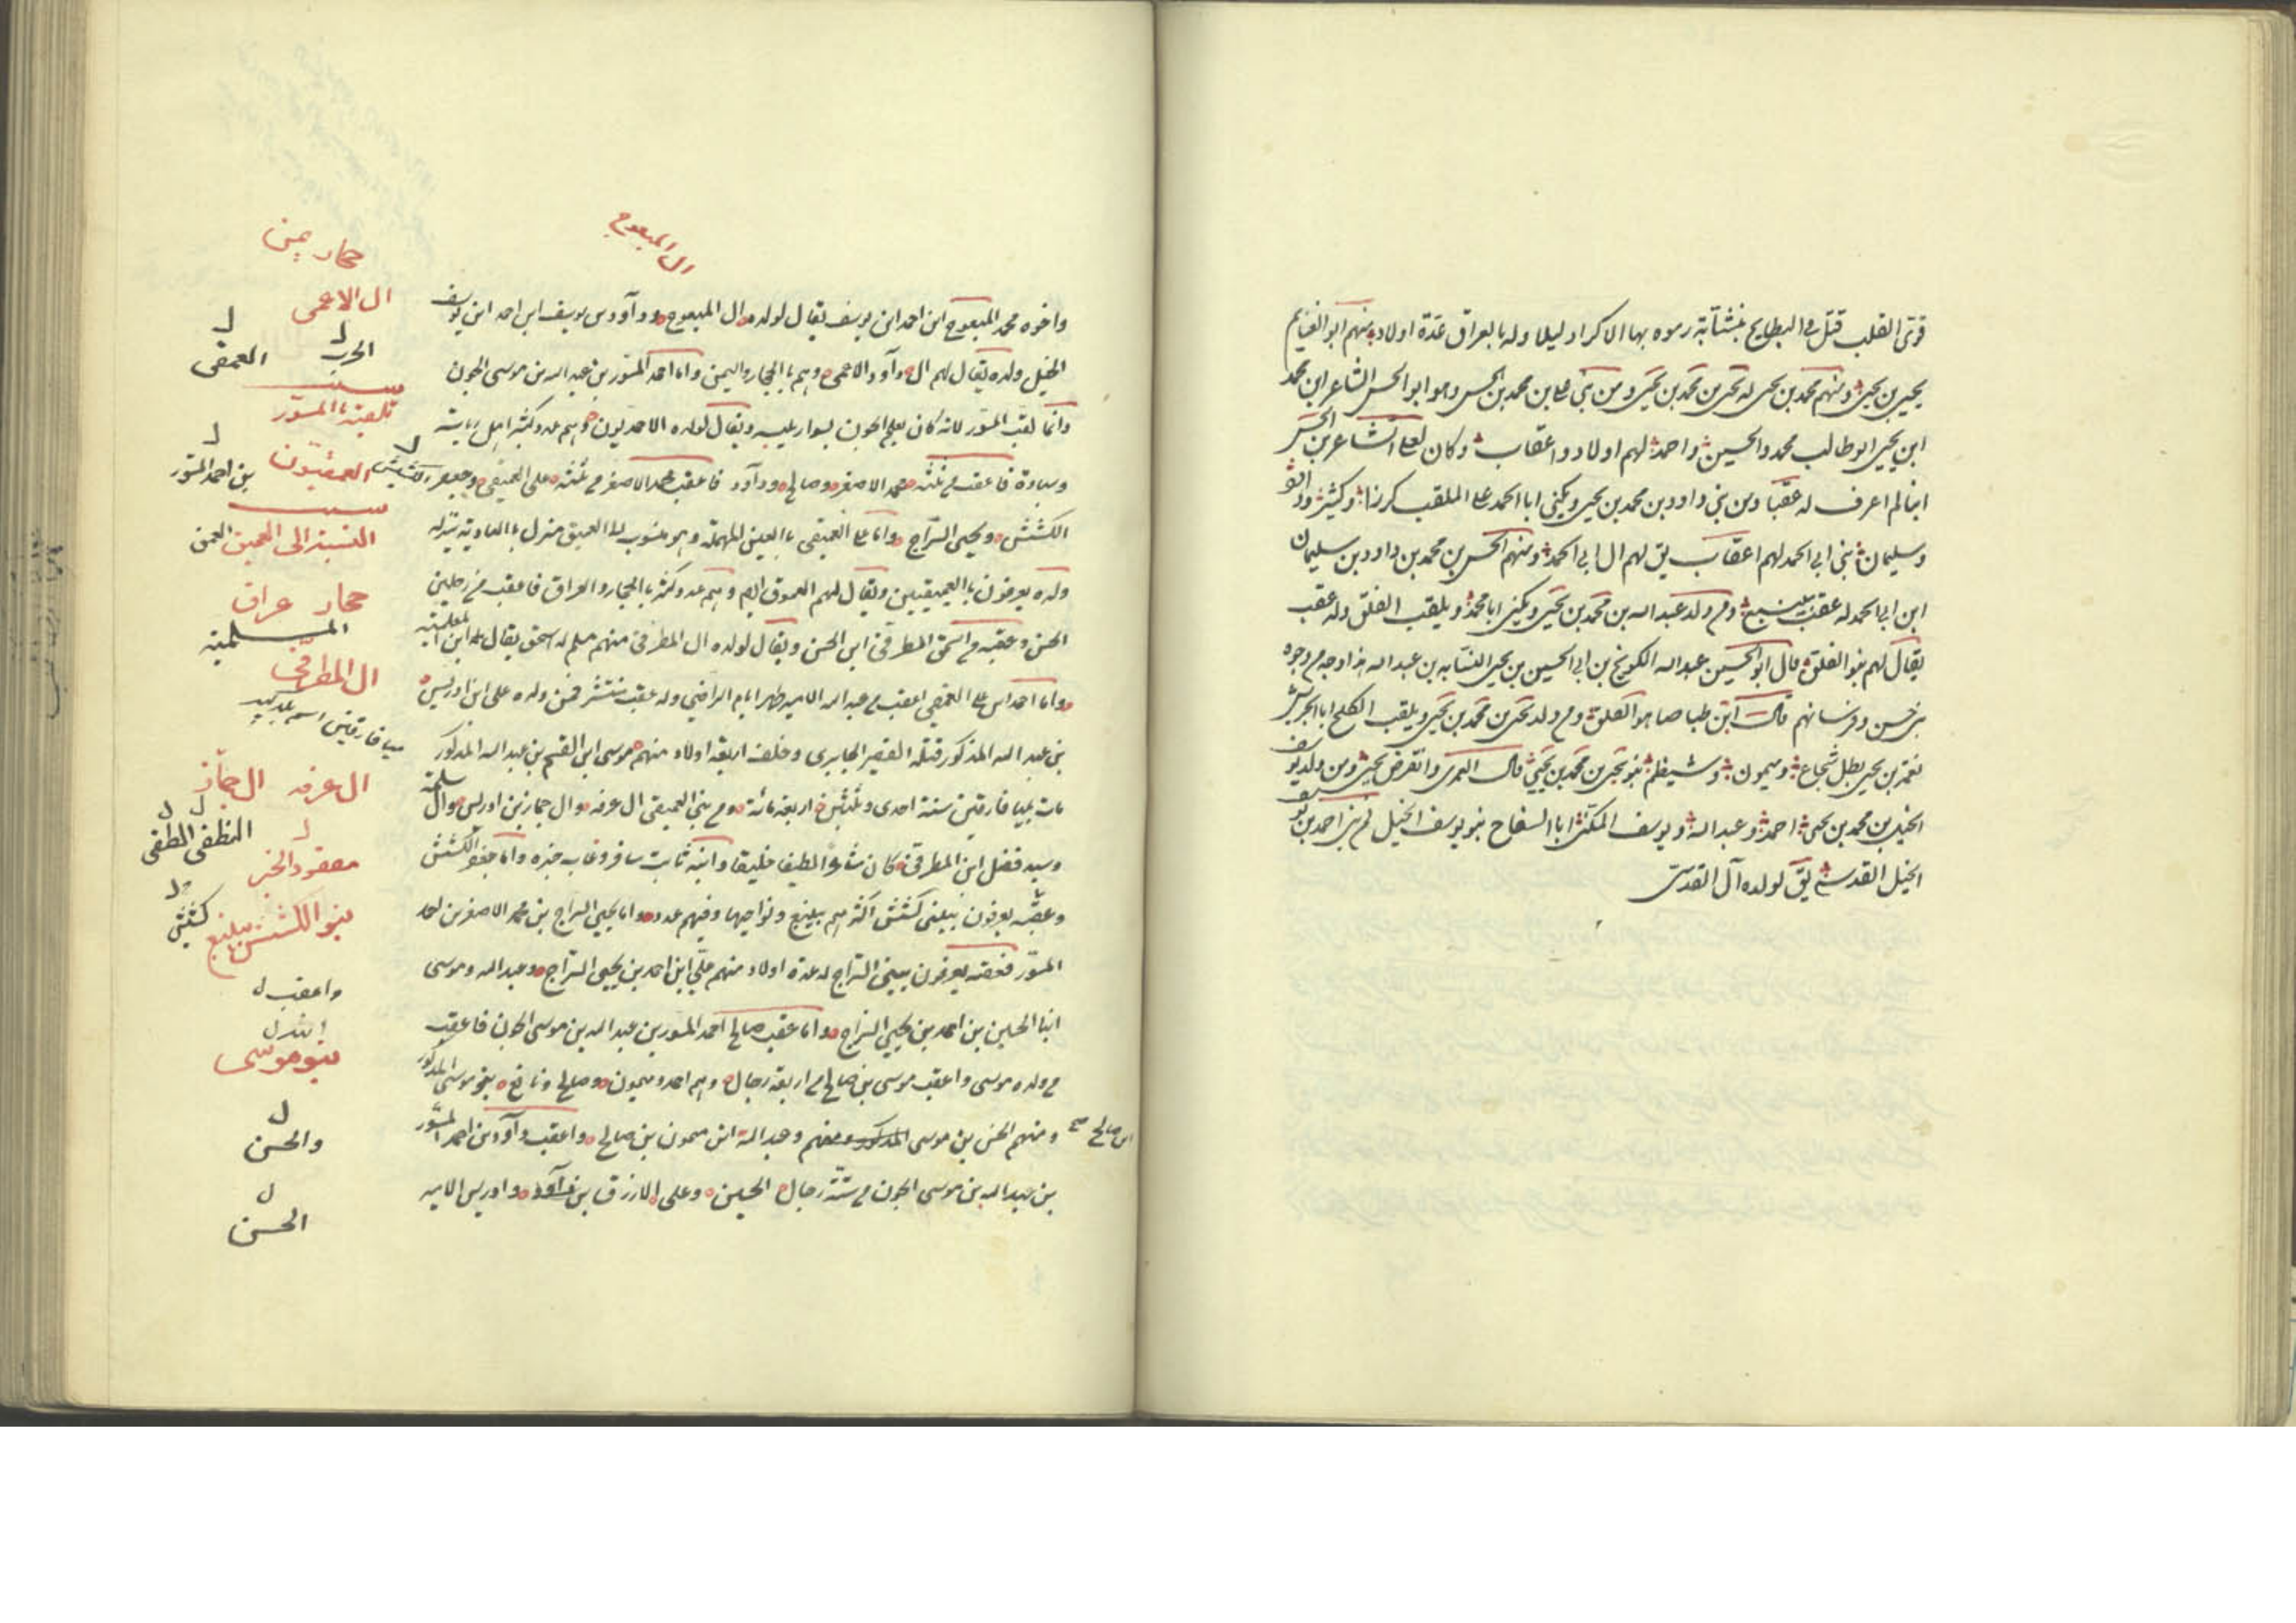 قوى القلب قتل في البطايح بنشابة رموه بها الاكراد ليلا وله بالعراق عدة اولاد منهم ابو الغنايم
يحيى بن يحيى ومنهم محمد بن يحيى له يحيى بن محمد بن يحيى ومن بني علي بن محمد بن الحسن وهو ابو الحسن الشاعر ابن محمد
ابن يحيى ابو طالب محمد والحسين واحمد لهم اولاد واعقاب وكان لعلي الشاعر بن الحسن
ابنا لم اعرف له عقبا ومن بني داود بن محمد بن يحيى ويكنى ابا الحمد علي الملقب كرزا وكثير
وسليمان بني ابي الحمد لهم اعقاب يق لهم ال ابي الحمد ومنهم الحسن بن محمد بن داود بن سليمان
ابن ابي الحمد له عقب بينبع ومن ولد عبد الله بن محمد بن يحيى ويكنى ابا محمد ويلقب الغلق وله عقب
يقال لهم بنو الغلق قال ابو الحسين عبد الله بن ابي الحسين بن يحيى النسابه بن عبد الله هذا وجه من وجوه
بني حسن وفرسانهم قال ابن طباطبا هو الغلق ومن ولد يحيى بن محمد بن يحيى ويلقب الكلح
نعمة بن يحيى بطل شجاع وميمون بنو يحيى بن محمد بن يحيى قال العمري وانقرض يحيى ومن ولد يوسف
الخيل بن محمد بن يحيى احمد وعبد الله ويوسف المكنى ابا السفاح بنو يوسف الخيل احمد بن يوسف
الخيل القدسي يق لولده آل القدسي
ال المبعوج
واخوه محمد المبعوج ابن احمد ابن يوسف يقال لولده ال المبعوج وداؤد بن يوسف ابن احمد ابن يوسف
الخيل ولده يقال لهم ال داود الاعمى وهم بالحجاز واليمن واما احمد المسور بن عبد الله بن موسى الجون
وانما لقب المسور لانه كان يعلم الجون بسوار يلبسه ويقال لولده الاحمديون وهم عدد وكثرة اهل رياسة
وسادة فاعقب من ثلثه محمد الاصغر وصالح وداود فاعقب محمد الاصغر من ثلثه علي العمقي وجعفر
الكشش ويحيى السراج واما علي العميقي بالعين المهملة وهو منسوب الى العميق منزل بالباديه نزله
ولده يعرفون بالعميقيين ويقال لهم العموق ايم وهم عدد وكثرة بالحجاز والعراق فاعقب من رجلين
الحسن وعقبه من اسحق المطرفي ابن الحسن ويقال لولده ال المطرفي منهم مسلم له اسحق يقال له ابن المعلمية
واما احمد ابن علي العمقي اعقب من عبد الله الامير ظهر ايام الراضي وله عقب منتشر فمن ولده علي ابن ادريس
بن عبد الله المذكور قتله القصير الجابري وخلف اربعة اولاد منهم موسى ابن القسم بن عبد الله المذكور
مات بميافارقين سنة احدى وثلثين اربعمائة ومن بني العميقي ال عرفه وال جماز بن ادريس وال سلمة
وسيد فضل ابن المطرفي كان شاعرا لطيفا خليقا وابنه ثابت سافر وغاب خبره واما جعفر الكشش
وعقبه يعرفون ببني كشش اكثرهم بينبع ونواحيها وفيهم عدد واما يحيى السراج بن محمد الاصغر بن احمد
المسور فعقبه يعرفون ببني السراج له عدة اولاد منهم علي ابن احمد بن يحيى السراج وعبد الله وموسى
ابنا الحسين بن احمد بن يحيى السراج واما عقب صالح احمد المسور بن عبد الله بن موسى الجون فاعقب
من ولده موسى واعقب موسى بن صالح من اربعة رجال وهم احمد وميمون وصالح ونافع بنو موسى المذكور
ومنهم الحسن بن موسى المذكور ومنهم وعبد الله ابن ميمون بن صالح واعقب داود بن احمد المسور
ابن صالح صح
بن عبد الله بن موسى الجون من ستة رجال الحسين وعلي الازرق بن داود وادريس الامير
حجاز يمن
ال الاعمى
الحرب
العمقي
سبب
تلقبه بالمسور
العمقيون
بن احمد المسور
سبب
النسبة الى العميق العمق
حجاز عراق
المسلمية
ال المطرفي
ميافارقين اسم بلد
ال عرفه ال جماز
معقود الخبر
بنو الكشش بينبع
كشش
واعقب ل
بنو موسى
والحسن
الحسن